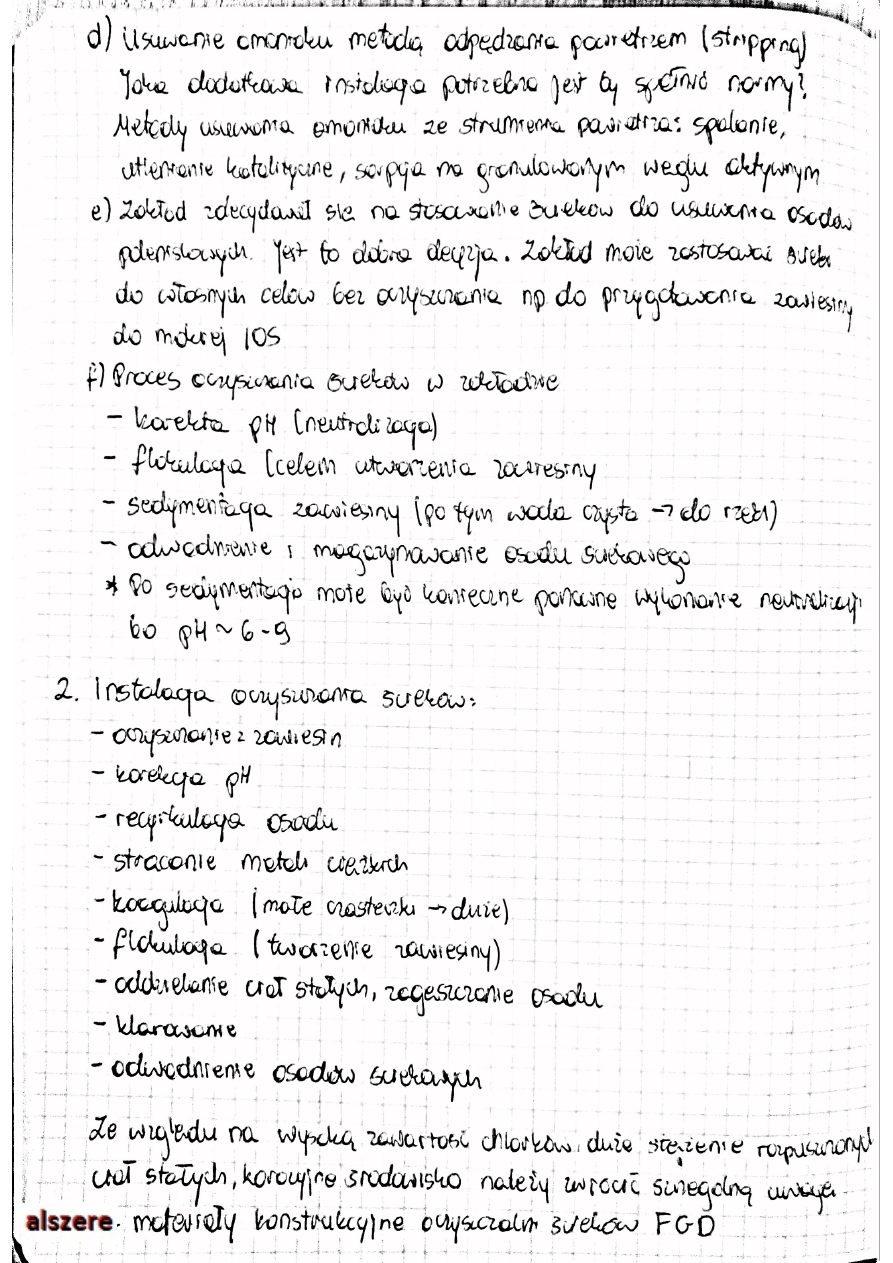 d) Usuwanie amoniaku metodą odpędzania powietrzem (stripping)
Jaka dodatkowa instalacja potrzebna jest by spełnić normy?
Metody usuwania amoniaku ze strumienia powietrza: spalanie,
utlenianie katalityczne, sorpcja na granulowanym węglu aktywnym
e) Zakład zdecydował się na stosowanie ścieków do usuwania osadów
paleniskowych. Jest to dobra decyzja. Zakład może zastosować ścieki
do własnych celów bez oczyszczania np do przygotowania zawiesiny
do mokrej IOS
f) Proces oczyszczania ścieków w zakładzie
- korekta pH (neutralizacja)
- flokulacja (celem utworzenia zawiesiny
- sedymentacja zawiesiny (po tym woda czysta → do rzeki)
- odwodnienie i magazynowanie osadu ściekowego
* Po sedymentacji może być konieczne ponowne wykonanie neutralizacji
bo pH ~ 6-9
2. Instalacja oczyszczania ścieków:
- oczyszczanie z zawiesin
- korekcja pH
- recyrkulacja osadu
- strącanie metali ciężkich
- koagulacja (małe cząsteczki → duże)
- flokulacja (tworzenie zawiesiny)
- oddzielanie ciał stałych, zagęszczanie osadu
- klarowanie
- odwodnienie osadów ściekowych
Ze względu na wysoką zawartość chlorków, duże stężenie rozpuszczonych
ciał stałych, korozyjne środowisko należy zwrócić szczególną uwagę
alszere. materiały konstrukcyjne oczyszczalni ścieków FGD